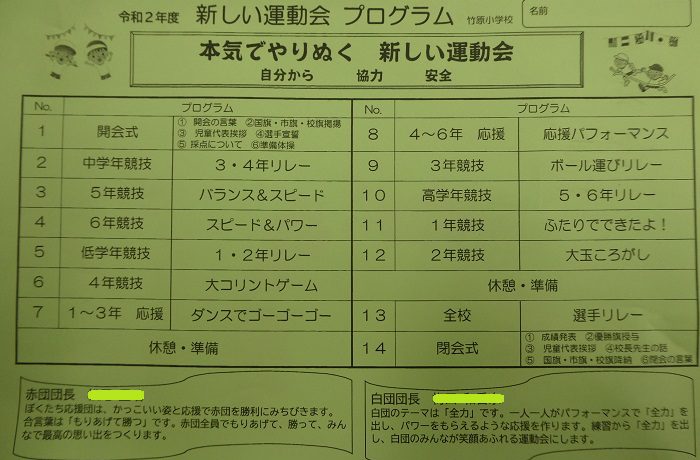 令和2年度 新しい運動会 プログラム 竹原小学校
名前
本気でやりぬく 新しい運動会
自分から 協力 安全
No. プログラム
1 開会式 ① 開会の言葉 ②国旗・市旗・校旗掲揚
③ 児童代表挨拶 ④選手宣誓
⑤ 採点について ⑥準備体操
2 中学年競技 3・4年リレー
3 5年競技 バランス&スピード
4 6年競技 スピード&パワー
5 低学年競技 1・2年リレー
6 4年競技 大コリントゲーム
7 1～3年 応援 ダンスでゴーゴーゴー
休憩・準備
No. プログラム
8 4～6年 応援 応援パフォーマンス
9 3年競技 ボール運びリレー
10 高学年競技 5・6年リレー
11 1年競技 ふたりでできたよ!
12 2年競技 大玉ころがし
休憩・準備
13 全校 選手リレー
14 閉会式 ① 成績発表 ②優勝旗授与
③ 児童代表挨拶 ④校長先生の話
⑤ 国旗・市旗・校旗降納 ⑥閉会の言葉
赤団団長
ぼくたち応援団は、かっこいい姿と応援で赤団を勝利にみちびきます。
合言葉は「もりあげて勝つ」です。赤団全員でもりあげて、勝って、みん
なで最高の思い出をつくります。
白団団長
白団のテーマは「全力」です。一人一人がパフォーマンスで「全力」を
出し、パワーをもらえるような応援を作ります。練習から「全力」を出
し、白団のみんなが笑顔あふれる運動会にします。